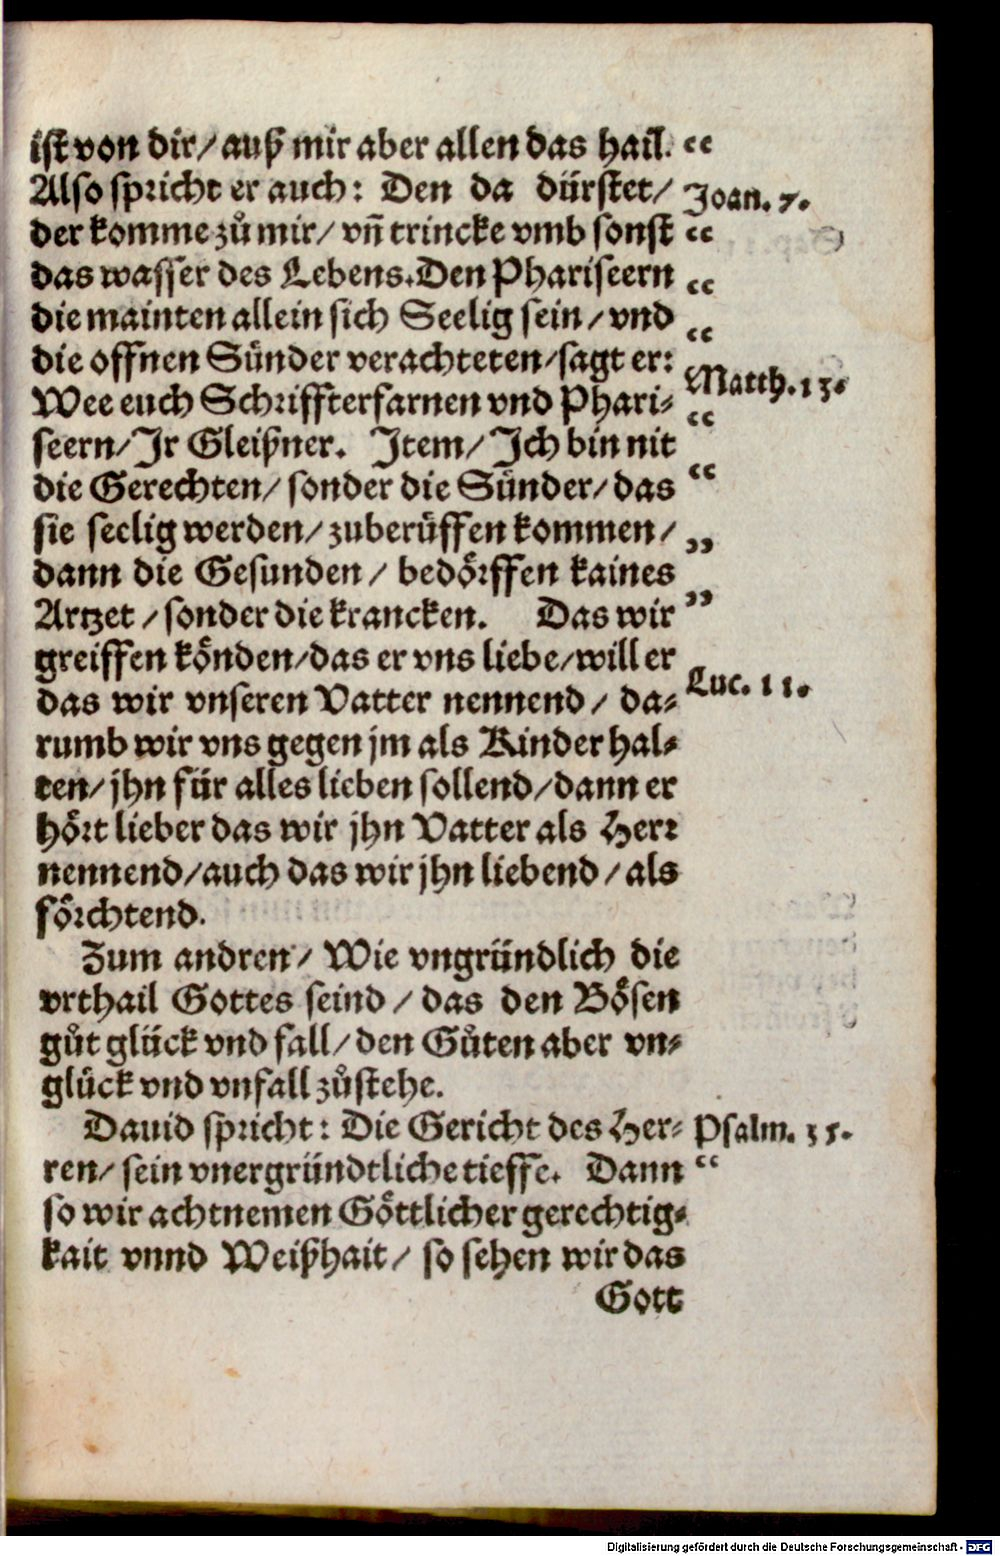 ist von dir/ auß mir aber allen das hail. “
Also spricht er auch: Den da dürstet/ Joan. 7.
der komme zů mir/ vñ trincke vmb sonst “
das wasser des Lebens. Den Phariseern “
die mainten allein sich Seelig sein/ vnd “
die offnen Sünder verachteten/ sagt er:
Wee euch Schrifftterfarnen vnd Phari- Matth. 13.
seern/ Jr Gleißner. Jtem/ Jch bin nit “
die Gerechten/ sonder die Sünder/ das “
sie seelig werden/ zuberüffen kommen/
dann die Gesunden/ bedörffen kaines ”
Artzet/ sonder die krancken. Das wir ”
greiffen könden/ das er vns liebe/ will er
das wir vnseren Vatter nennend/ da- Luc. 11.
rumb wir vns gegen jm als Kinder hal-
ten/ jhn für alles lieben sollend/ dann er
hört lieber das wir jhn Vatter als Herr
nennend/ auch das wir jhn liebend/ als
förchtend.
Zum andren/ Wie vngründlich die
vrthail Gottes seind/ das den Bösen
gůt glück vnd fall/ den Gůten aber vn-
glück vnd vnfall zůstehe.
Dauid spricht: Die Gericht des Her- Psalm. 35.
ren/ sein vnergründtliche tieffe. Dann “
so wir achtnemen Göttlicher gerechtig-
kait vnnd Weißhait/ so sehen wir das
Gott
Digitalisierung gefördert durch die Deutsche Forschungsgemeinschaft - DFG